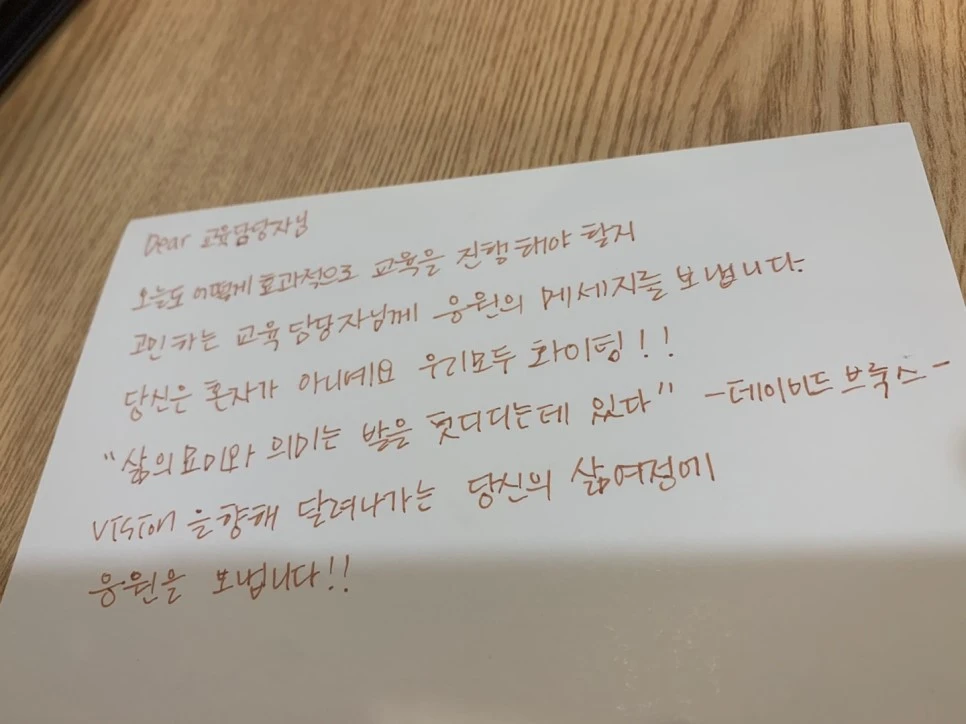 Dear 교육담당자님
오늘도 어떻게 효과적으로 교육을 진행해야 할지
고민하는 교육담당자님께 응원의 메세지를 보냅니다.
당신은 혼자가 아니예요 우리모두 화이팅!!
"삶의 묘미와 의미는 발을 헛디디는데 있다" -데이비드 브룩스-
VISION 을향해 달려나가는 당신의 삶여정에
응원을 보냅니다!!